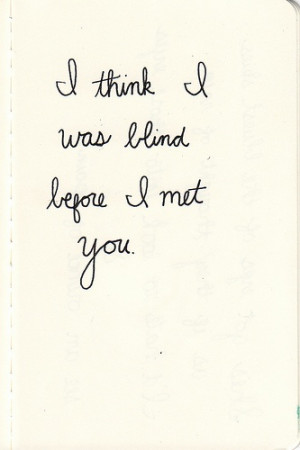 I think I
was blind
before I met
you.